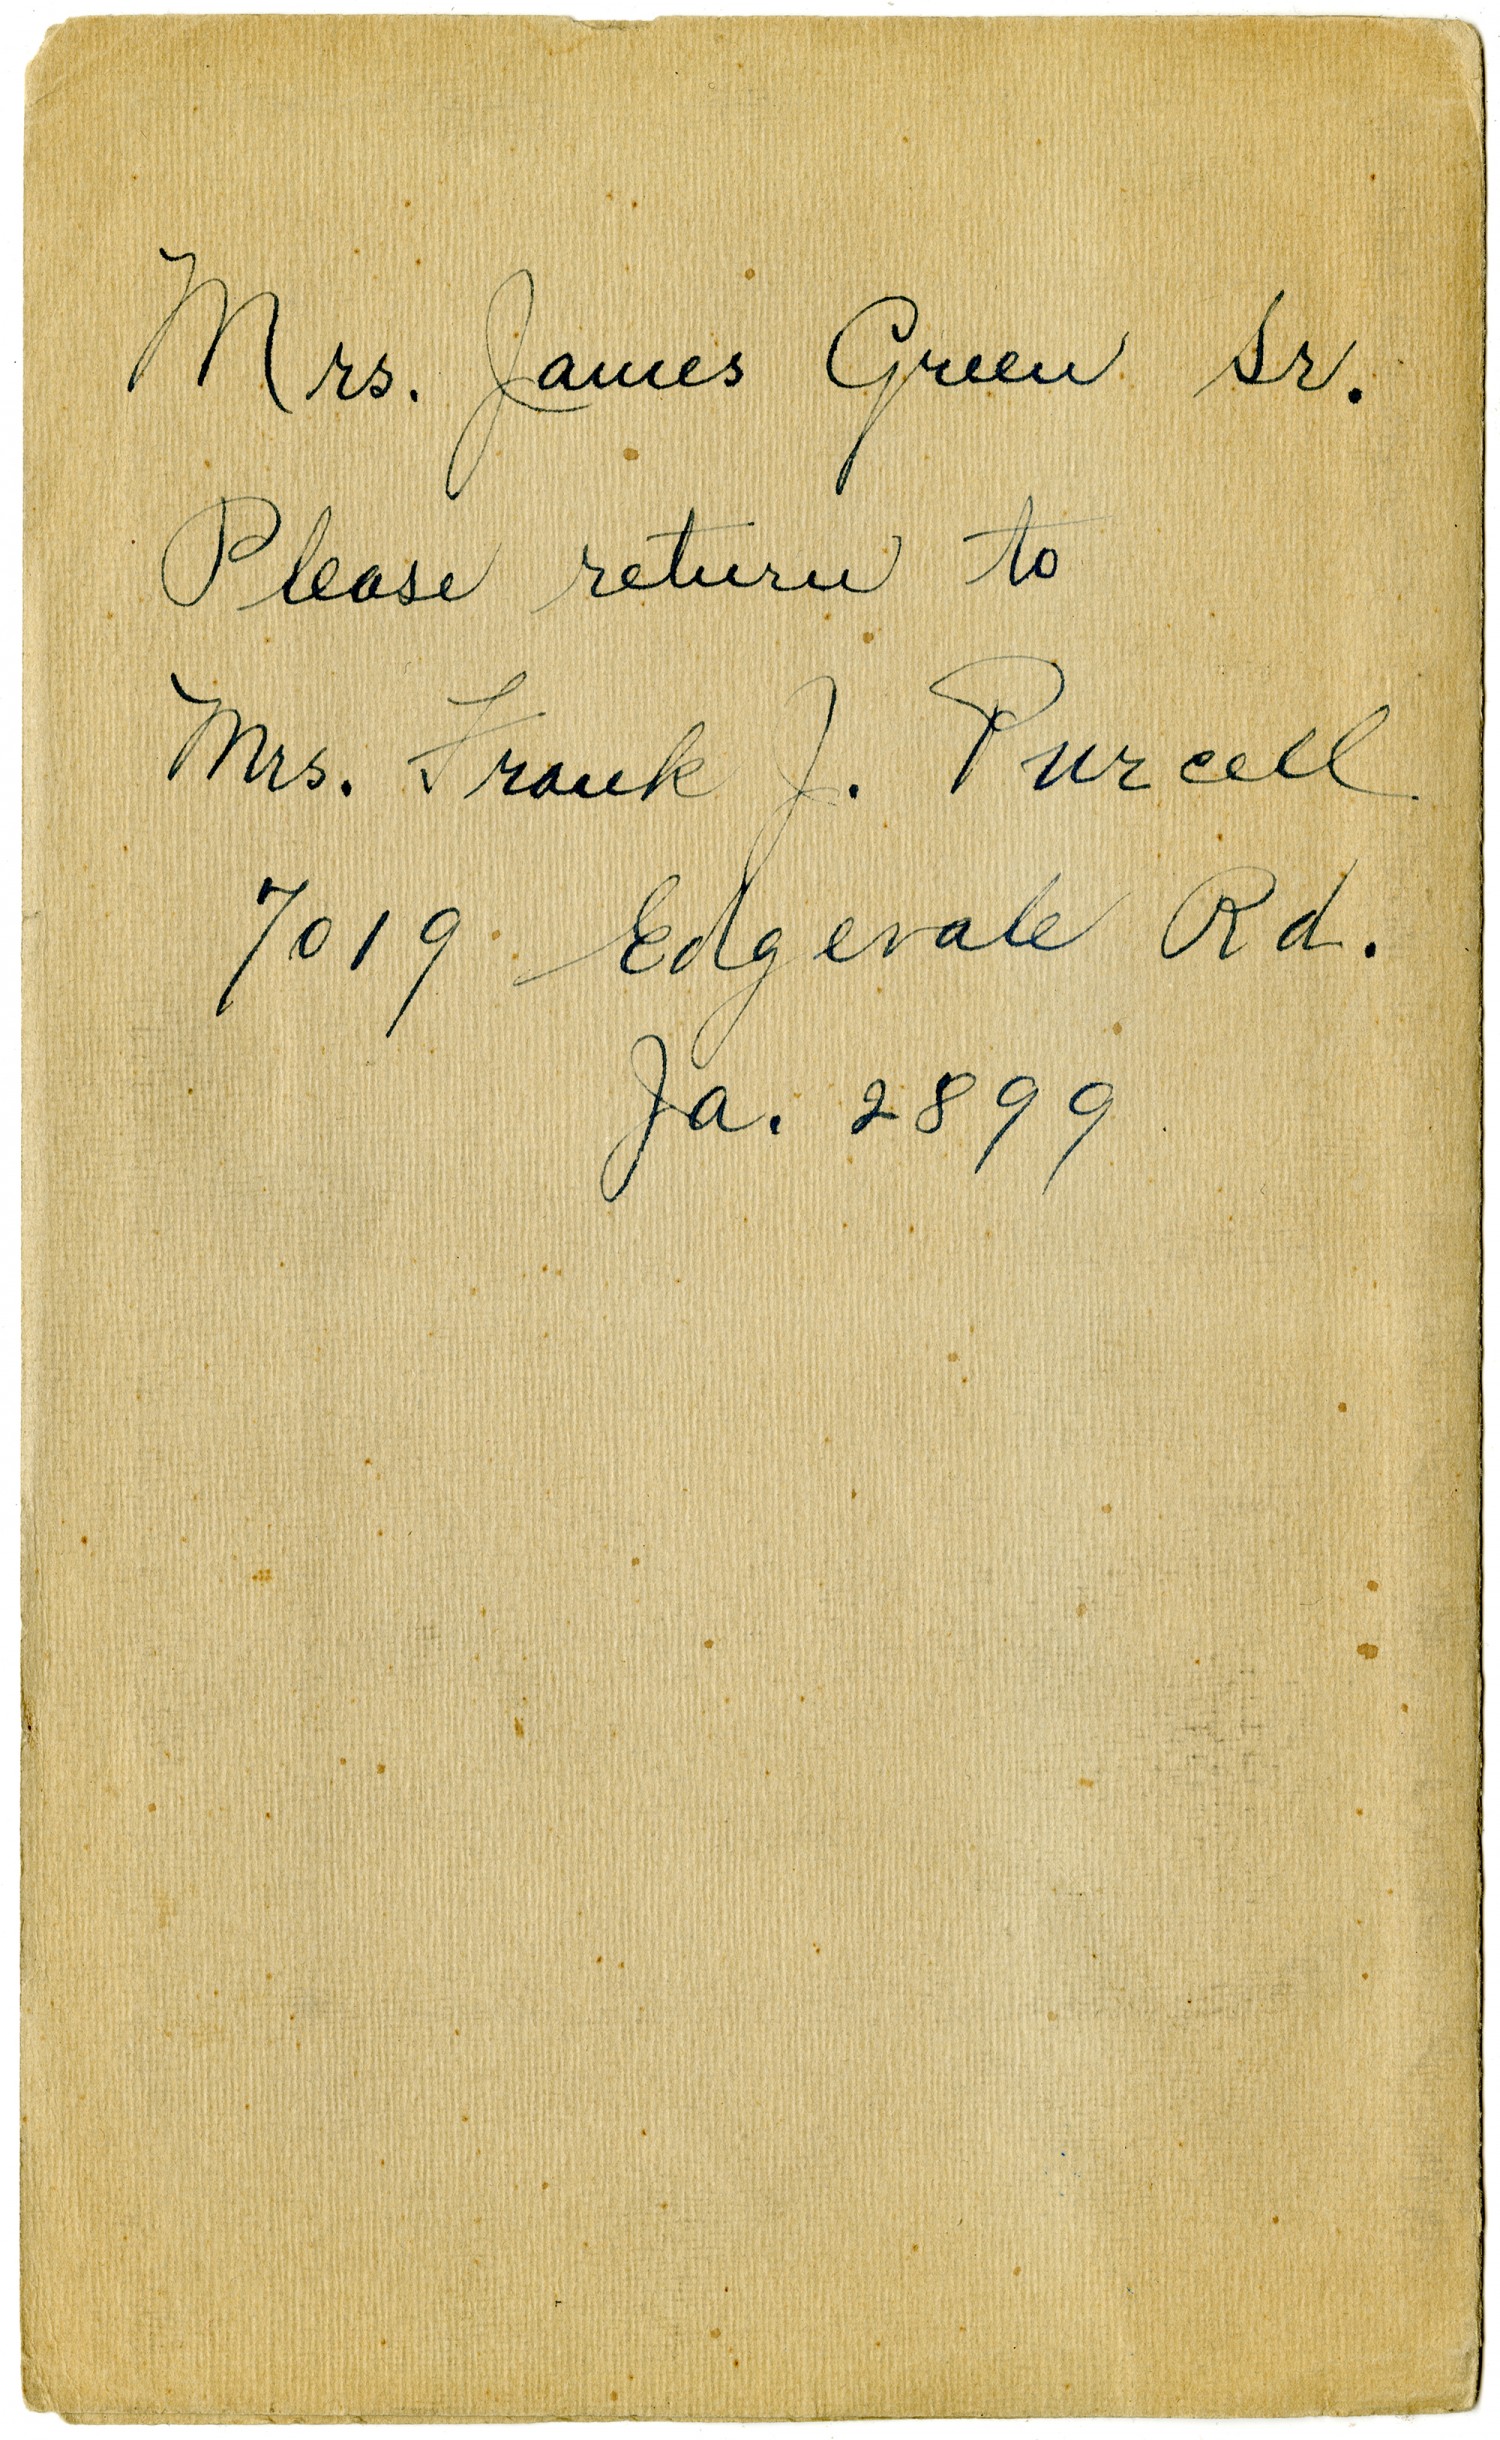 Mrs. James Green Sr.
Please return to
Mrs. Frank J. Purcell
7019 Edgevale Rd.
Ja. 2899